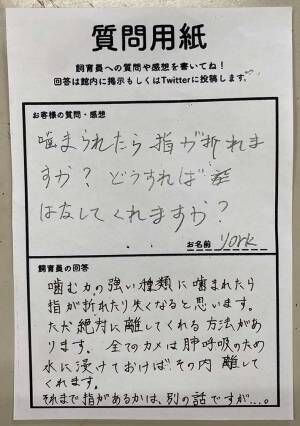 質問用紙
飼育員への質問や感想を書いてね！
回答は館内に掲示もしくはTwitterに投稿します。
お客様の質問・感想
噛まられたら指が折れま
すか？どうすれば
はなしてくれますか？
お名前 york
飼育員の回答
噛む力の強い種類に噛まれたら
指が折れたり失くなると思います。
ただ絶対に離してくれる方法があ
ります。全てのカメは肺呼吸のため
水に浸けておけばその内離して
くれます。
それまで指があるかは、別の話ですが…。